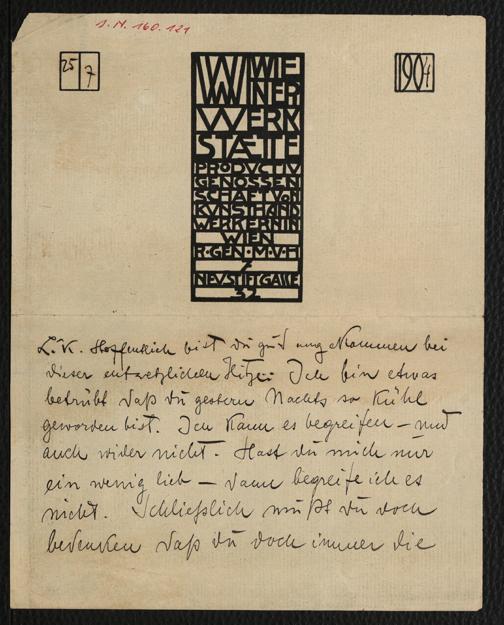 J.N. 160.121
25/7
1904
WIE
NER
WERK
STÆTTE
PRODVCTIV
GENOSSEN
SCHAFT VON
KVNSTHAND
WERKERN IN
WIEN
R·GEN·M·V·H
7
NEVSTIFTGASSE
32
L. K. Hoffentlich bist du gut angekommen bei
dieser entsetzlichen Hitze. Ich bin etwas
betrübt daß du gestern Nachts so kühl
geworden bist. Ich kann es begreifen – und
auch wider nicht. Hast du mich nur
ein wenig lieb – dann begreife ich es
nicht. Schließlich mußt du doch
bedenken daß du doch immer die